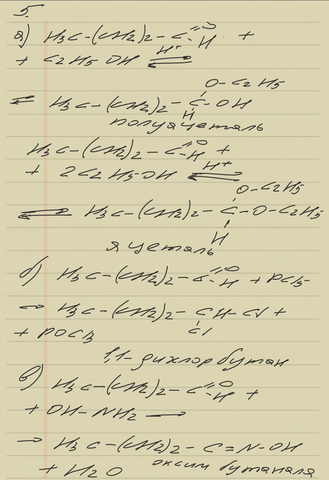 5.
а) H3C-(CH2)2-C=O H +
+ C2H5OH H+ ⇌
O-C2H5
⇌ H3C-(CH2)2-C-OH
H
полуацеталь
H3C-(CH2)2-C=O H +
+ 2C2H5-OH H+ ⇌
O-C2H5
⇌ H3C-(CH2)2-C-O-C2H5
H
яцеталь
б) H3C-(CH2)2-C=O H + PCl5
→ H3C-(CH2)2-CH-Cl +
Cl
+ POCl3
1,1-дихлорбутан
в)
H3C-(CH2)2-C=O H +
+ OH-NH2 →
→ H3C-(CH2)2-C=N-OH
+ H2O оксим бутаналя